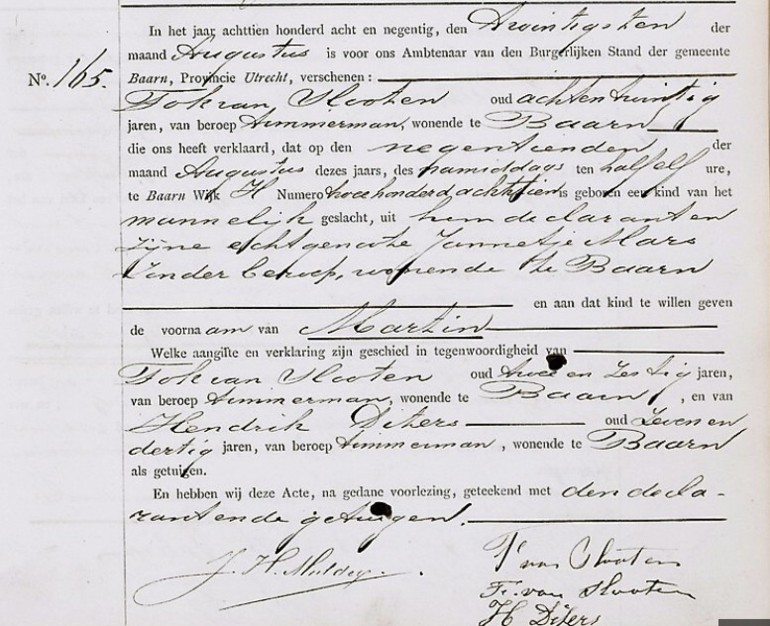 In het jaar achttien honderd acht en negentig, den twintigsten der
maand Augustus is voor ons Ambtenaar van den Burgerlijken Stand der gemeente
No. 165. Baarn, Provincie Utrecht, verschenen:
Fok van Slooten oud achtentwintig
jaren, van beroep timmerman, wonende te Baarn
die ons heeft verklaard, dat op den negentienden der
maand Augustus dezes jaars, des namiddags ten half elf ure,
te Baarn Wijk H Numero twee honderd achttien is geboren een kind van het
mannelijk geslacht, uit hem declarant en
zijne echtgenoote Jannetje Mars
zonder beroep, wonende te Baarn
en aan dat kind te willen geven
de voornaam van Martin
Welke aangifte en verklaring zijn geschied in tegenwoordigheid van
Fok van Slooten oud twee en zestig jaren,
van beroep timmerman, wonende te Baarn, en van
Hendrik Diters oud zeven en
dertig jaren, van beroep timmerman, wonende te Baarn
als getuigen.
En hebben wij deze Acte, na gedane voorlezing, geteekend met den decla-
rant en de getuigen.
J. H. Mulder. F van Slooten
F. van Slooten
H Diters